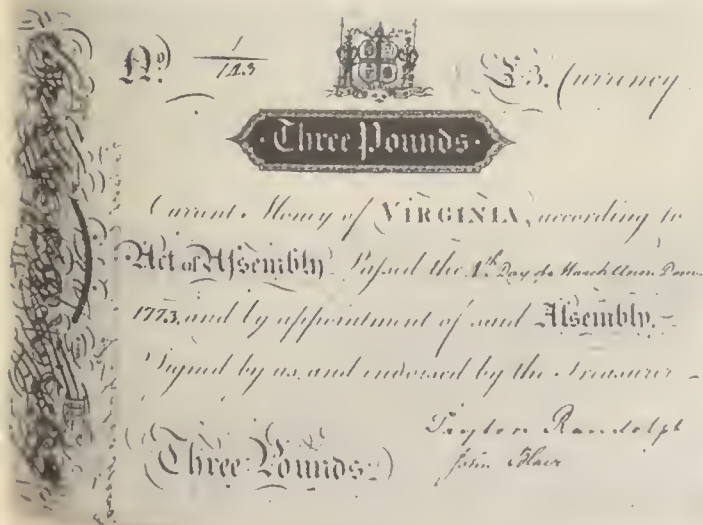 No. 1/143 £3. Currency
·Three Pounds·
Curant Money of VIRGINIA, according to
Act of Assembly Passed the Day of March Ann. Dom.
1773, and by appointment of said Assembly.—
Signed by us, and endorsed by the Treasurer—
Peyton Randolph
(Three Pounds.) John Blair